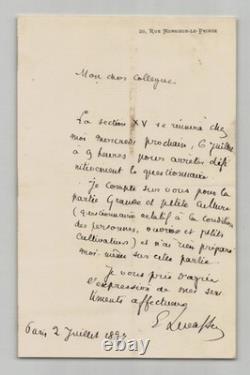 26, Rue Monsieur-le-Prince
Mon cher Collègue,
La section XV se réunira chez
moi mercredi prochain, 6 juillet
à 9 heures pour arrêter défi
nitivement le questionnaire.
Je compte sur vous pour la
partie Grande et petite Culture
(questionnaire relatif à la Condition
des personnes, ouvriers et petits
Cultivateurs) et n'ai rien préparé
moi-même sur cette partie.
Je vous prie d'agréer
l'expression de mes sen
timents affectueux
E Levasseur
Paris 2 Juillet